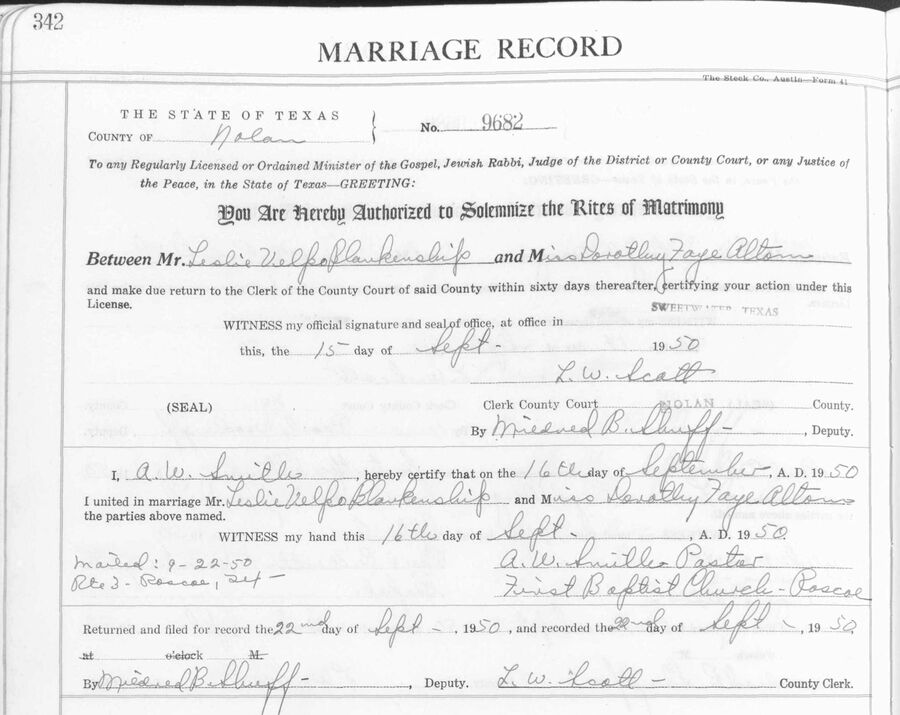 342
MARRIAGE RECORD
The Steck Co., Austin—Form 41
THE STATE OF TEXAS
COUNTY OF Nolan
No. 9682
To any Regularly Licensed or Ordained Minister of the Gospel, Jewish Rabbi, Judge of the District or County Court, or any Justice of
the Peace, in the State of Texas—GREETING:
You Are Hereby Authorized to Solemnize the Rites of Matrimony
Between Mr. Leslie Velpo Blankenship and Miss Dorothy Faye Altom
and make due return to the Clerk of the County Court of said County within sixty days thereafter, certifying your action under this
License.
SWEETWATER, TEXAS
WITNESS my official signature and seal of office, at office in
this, the 15 day of Sept - 1950
L. W. Scott
(SEAL) Clerk County Court NOLAN County.
By Mildred B. Shurff - , Deputy.
I, A. W. Smith , hereby certify that on the 16th day of September, A. D. 1950
I united in marriage Mr. Leslie Velpo Blankenship and Miss Dorothy Faye Altom
the parties above named.
WITNESS my hand this 16th day of Sept - , A. D. 1950.
mailed: 9-22-50 A. W. Smith - Pastor
Rte 3 - Roscoe, Tex - First Baptist Church - Roscoe
Returned and filed for record the 22nd day of Sept - , 1950, and recorded the 22nd day of Sept - , 1950.
at o'clock M.
By Mildred B. Shurff - , Deputy. L. W. Scott - County Clerk.